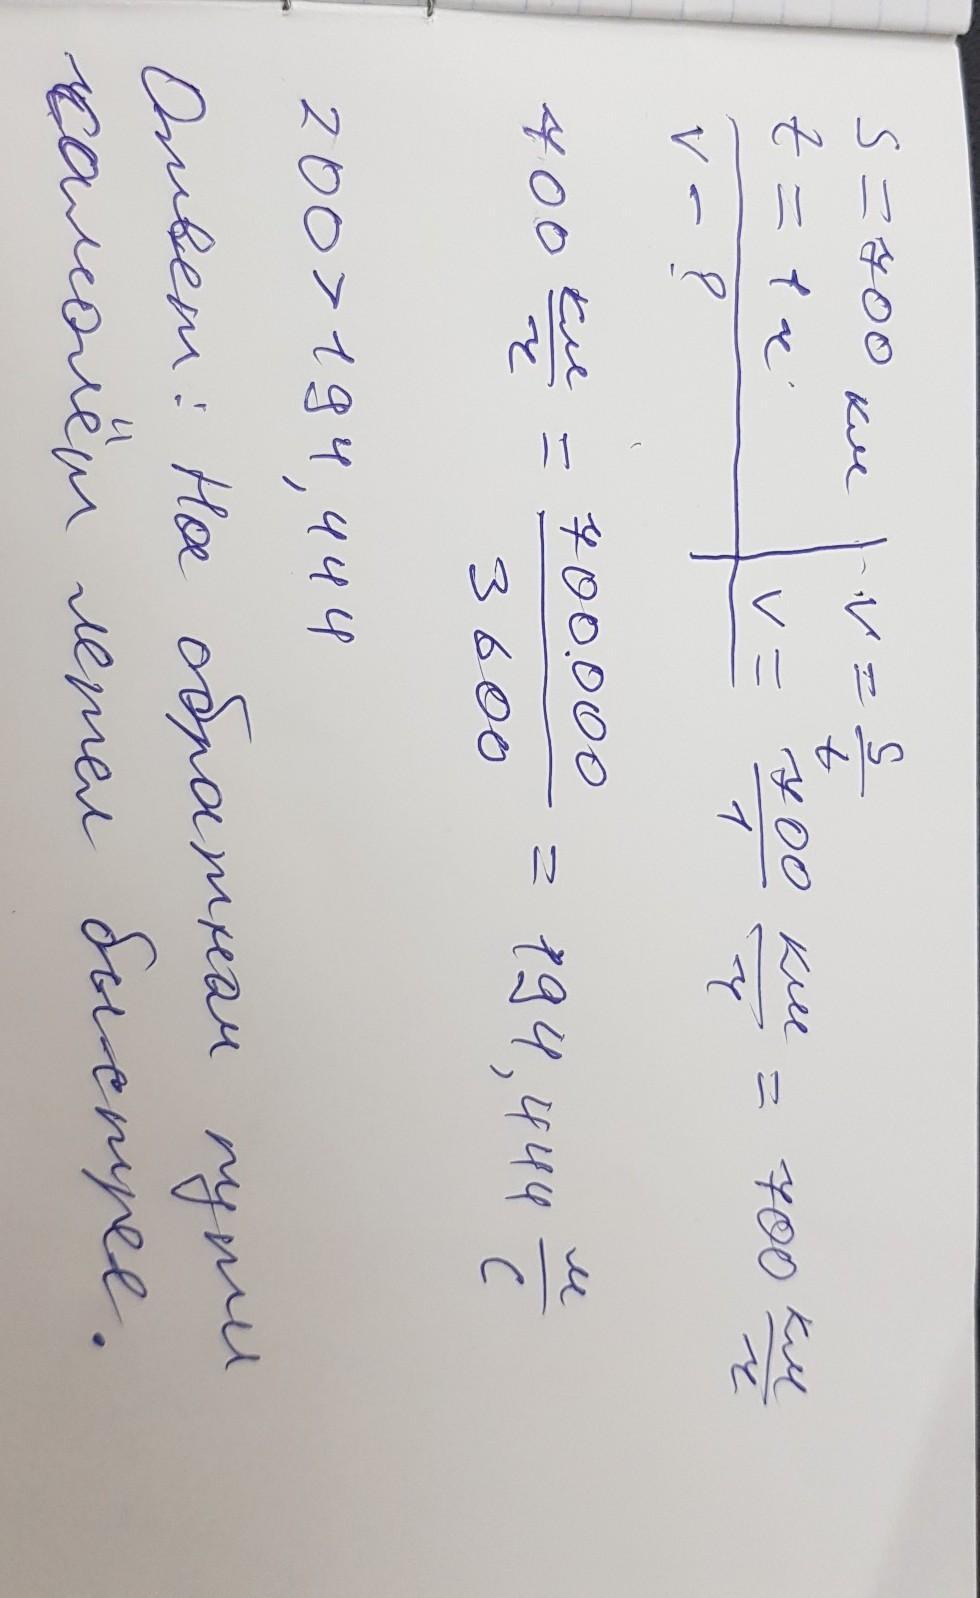 S = 700 км | V = S/t
t = 1 ч
V - ? | V = 700/1 км/ч = 700 км/ч
700 км/ч = 700.000/3600 = 194,444 м/с
200 > 194,444
Ответ: На обратном пути
самолёт летел быстрее.